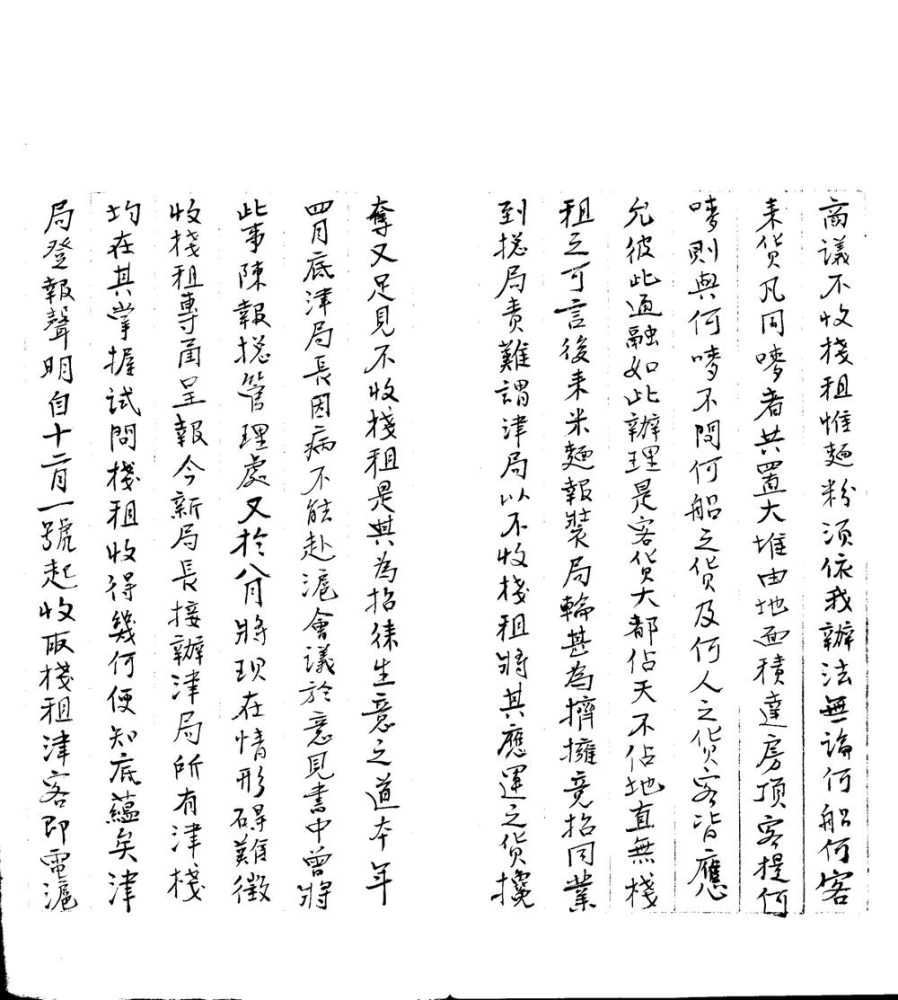 商議不收棧租惟麵粉須依我辦法無論何船何客
来貨凡同嘜者共置大堆由地面積達房頂客提何
嘜則與何嘜不問何船之貨及何人之貨客皆應
允彼此通融如此辦理是客貨大都佔天不佔地直無棧
租之可言後来米麵報裝局輪甚為擠擁竟招同業
到捴局责難謂津局以不收棧租將其應運之貨攙
奪又足見不收棧租是其為招徕生意之道本年
四月底津局長因病不能赴滬會議於意見書中曾將
此事陳報捴管理處又於八月將现在情形碍難徵
收棧租專函呈報今新局長接辦津局所有津棧
均在其掌握試問棧租收得幾何便知底蘊矣津
局登報聲明自十二月一號起收取棧租津客即電滬